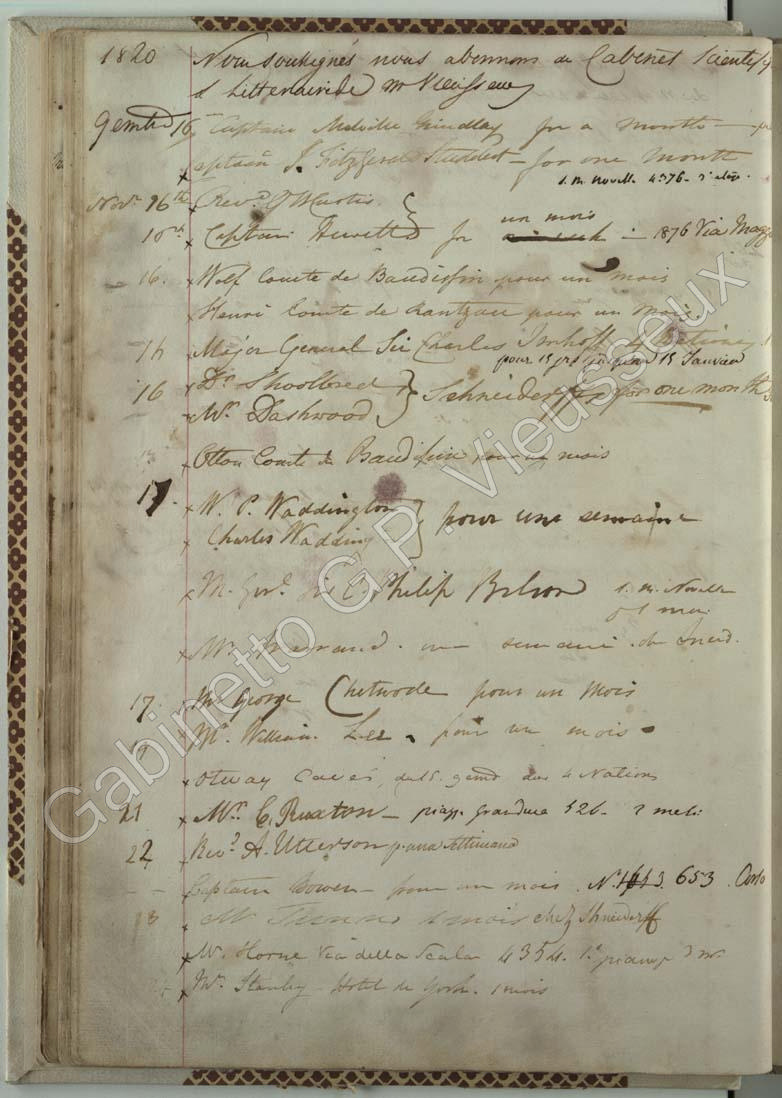 1820 Nous soussignés nous abonnons au Cabinet Scientifiq
& Litteraire de Mr Vieusseux
9embre 16 Captain Melville Grindlay for a month
Captain J. Fitzgerald Studdert – for one Month
S. M. Novella 4376
Novr 16th Revd
Captain Hewett for un mois – 1876 Via Magg
16. Wolf Comte de Baudissin pour un mois
Henri Comte de Rantzau pour un mois.
16 Major General Sir Charles Imhoff
pour 15 jrs jusqu'au 15 Janvier
16 Dr Shoolbred } Schneiderff for one month
Mr Dashwood }
Otton Comte de Baudissin pour un mois
17. W. P. Waddington } pour une semaine
Charles Wadding
M. Genl Sir C. Philip Belson S. M. Novella
1 mois
Mr une semaine
17. Mr George Chetwode pour un Mois
Mr William Lee. pour un mois
Otway Cave, 4 Nations
21 Mr C. Ruxton – piazz Granduca 526. 2 mesi
22 Revd A. Utterson p. una settimana
Captain Bowen – pour un mois. No. 653.
Mr 1 mois chez Shneiderff
Mr. Horne Via della Scala 4354. 1o piano
Mr Stanley – Hotel de York. 1 mois
Gabinetto G.P. Vieusseux